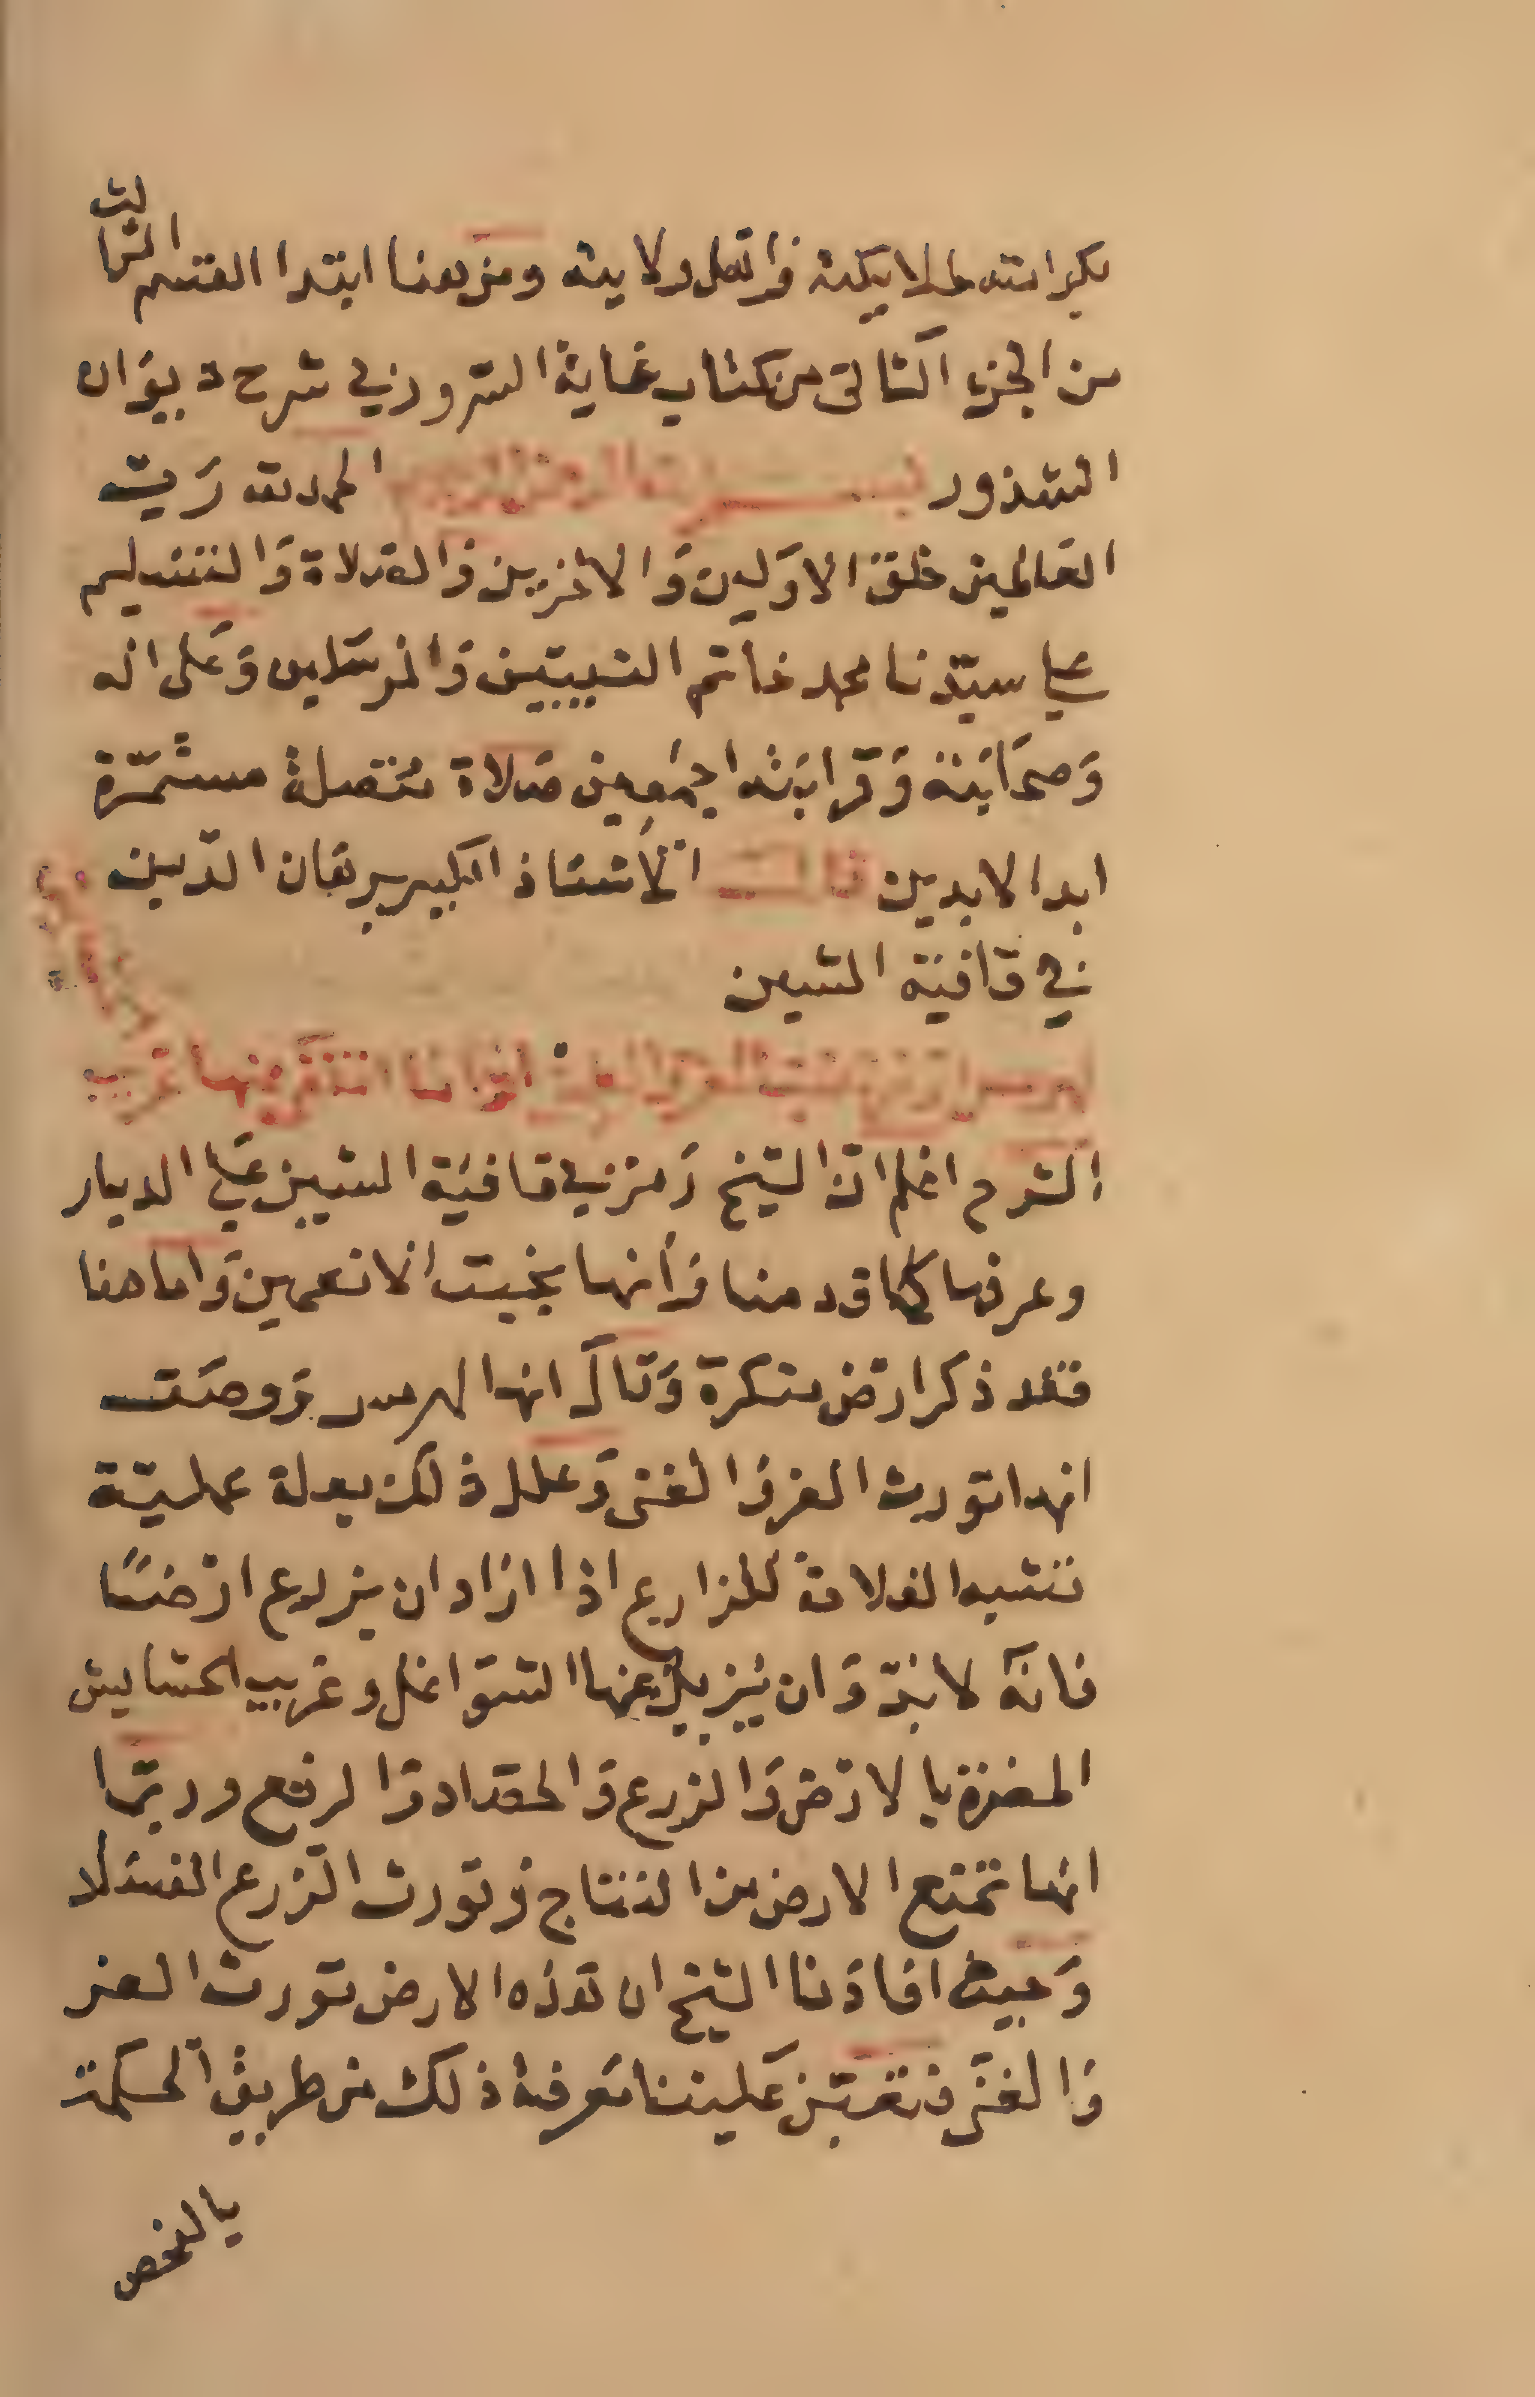 بكرامته ملايكته واهل ولايته ومن هنا ابتدا القسم الثالث
من الجزء الثاني من كتاب غاية السرور في شرح ديوان
الشذور بسم الله الرحمن الرحيم الحمد لله رب
العالمين خلق الاولين والاخرين والصلاة والتسليم
علي سيدنا محمد خاتم النبيين والمرسلين وعلى اله
وصحابته وقرابته اجمعين صلاة متصلة مستمرة
ابد الابدين قال الاستاذ الكبير برهان الدين
في قافية الشين
انتفى عنها غريب
الشرح اعلم ان الشيخ رمز في قافية السين علي الديار
وعرفها كما قدمنا وانها بخبت الانعمين واما هنا
فقد ذكر ارض منكرة وقال انها لهرمس ووصف
انها تورث العز والغنى وعلل ذلك بعلة عملية
تشبه الفلاحة للزارع اذا اراد ان يزرع ارضا
فانه لابد وان يزيل عنها الشواغل وغريب الحشايش
المضرة بالارض والزرع والحصاد والرفع وربما
انها تمنع الارض من النتاج وتورث الزرع الفساد
وحيث افادنا الشيخ ان هذه الارض تورث العز
والغنى فتعين علينا معرفة ذلك من طريق الحكمة
بالفحص